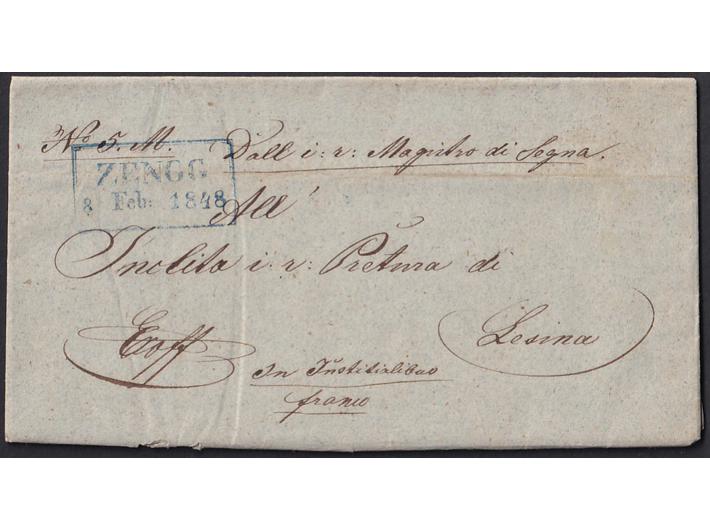 No 5. M. Dall i: r: Magistro di Segna.
ZENGG
8 Feb: 1848
All'
Inclita i: r: Pretura di
Exoff. Lesina
In Justitialibus
franco